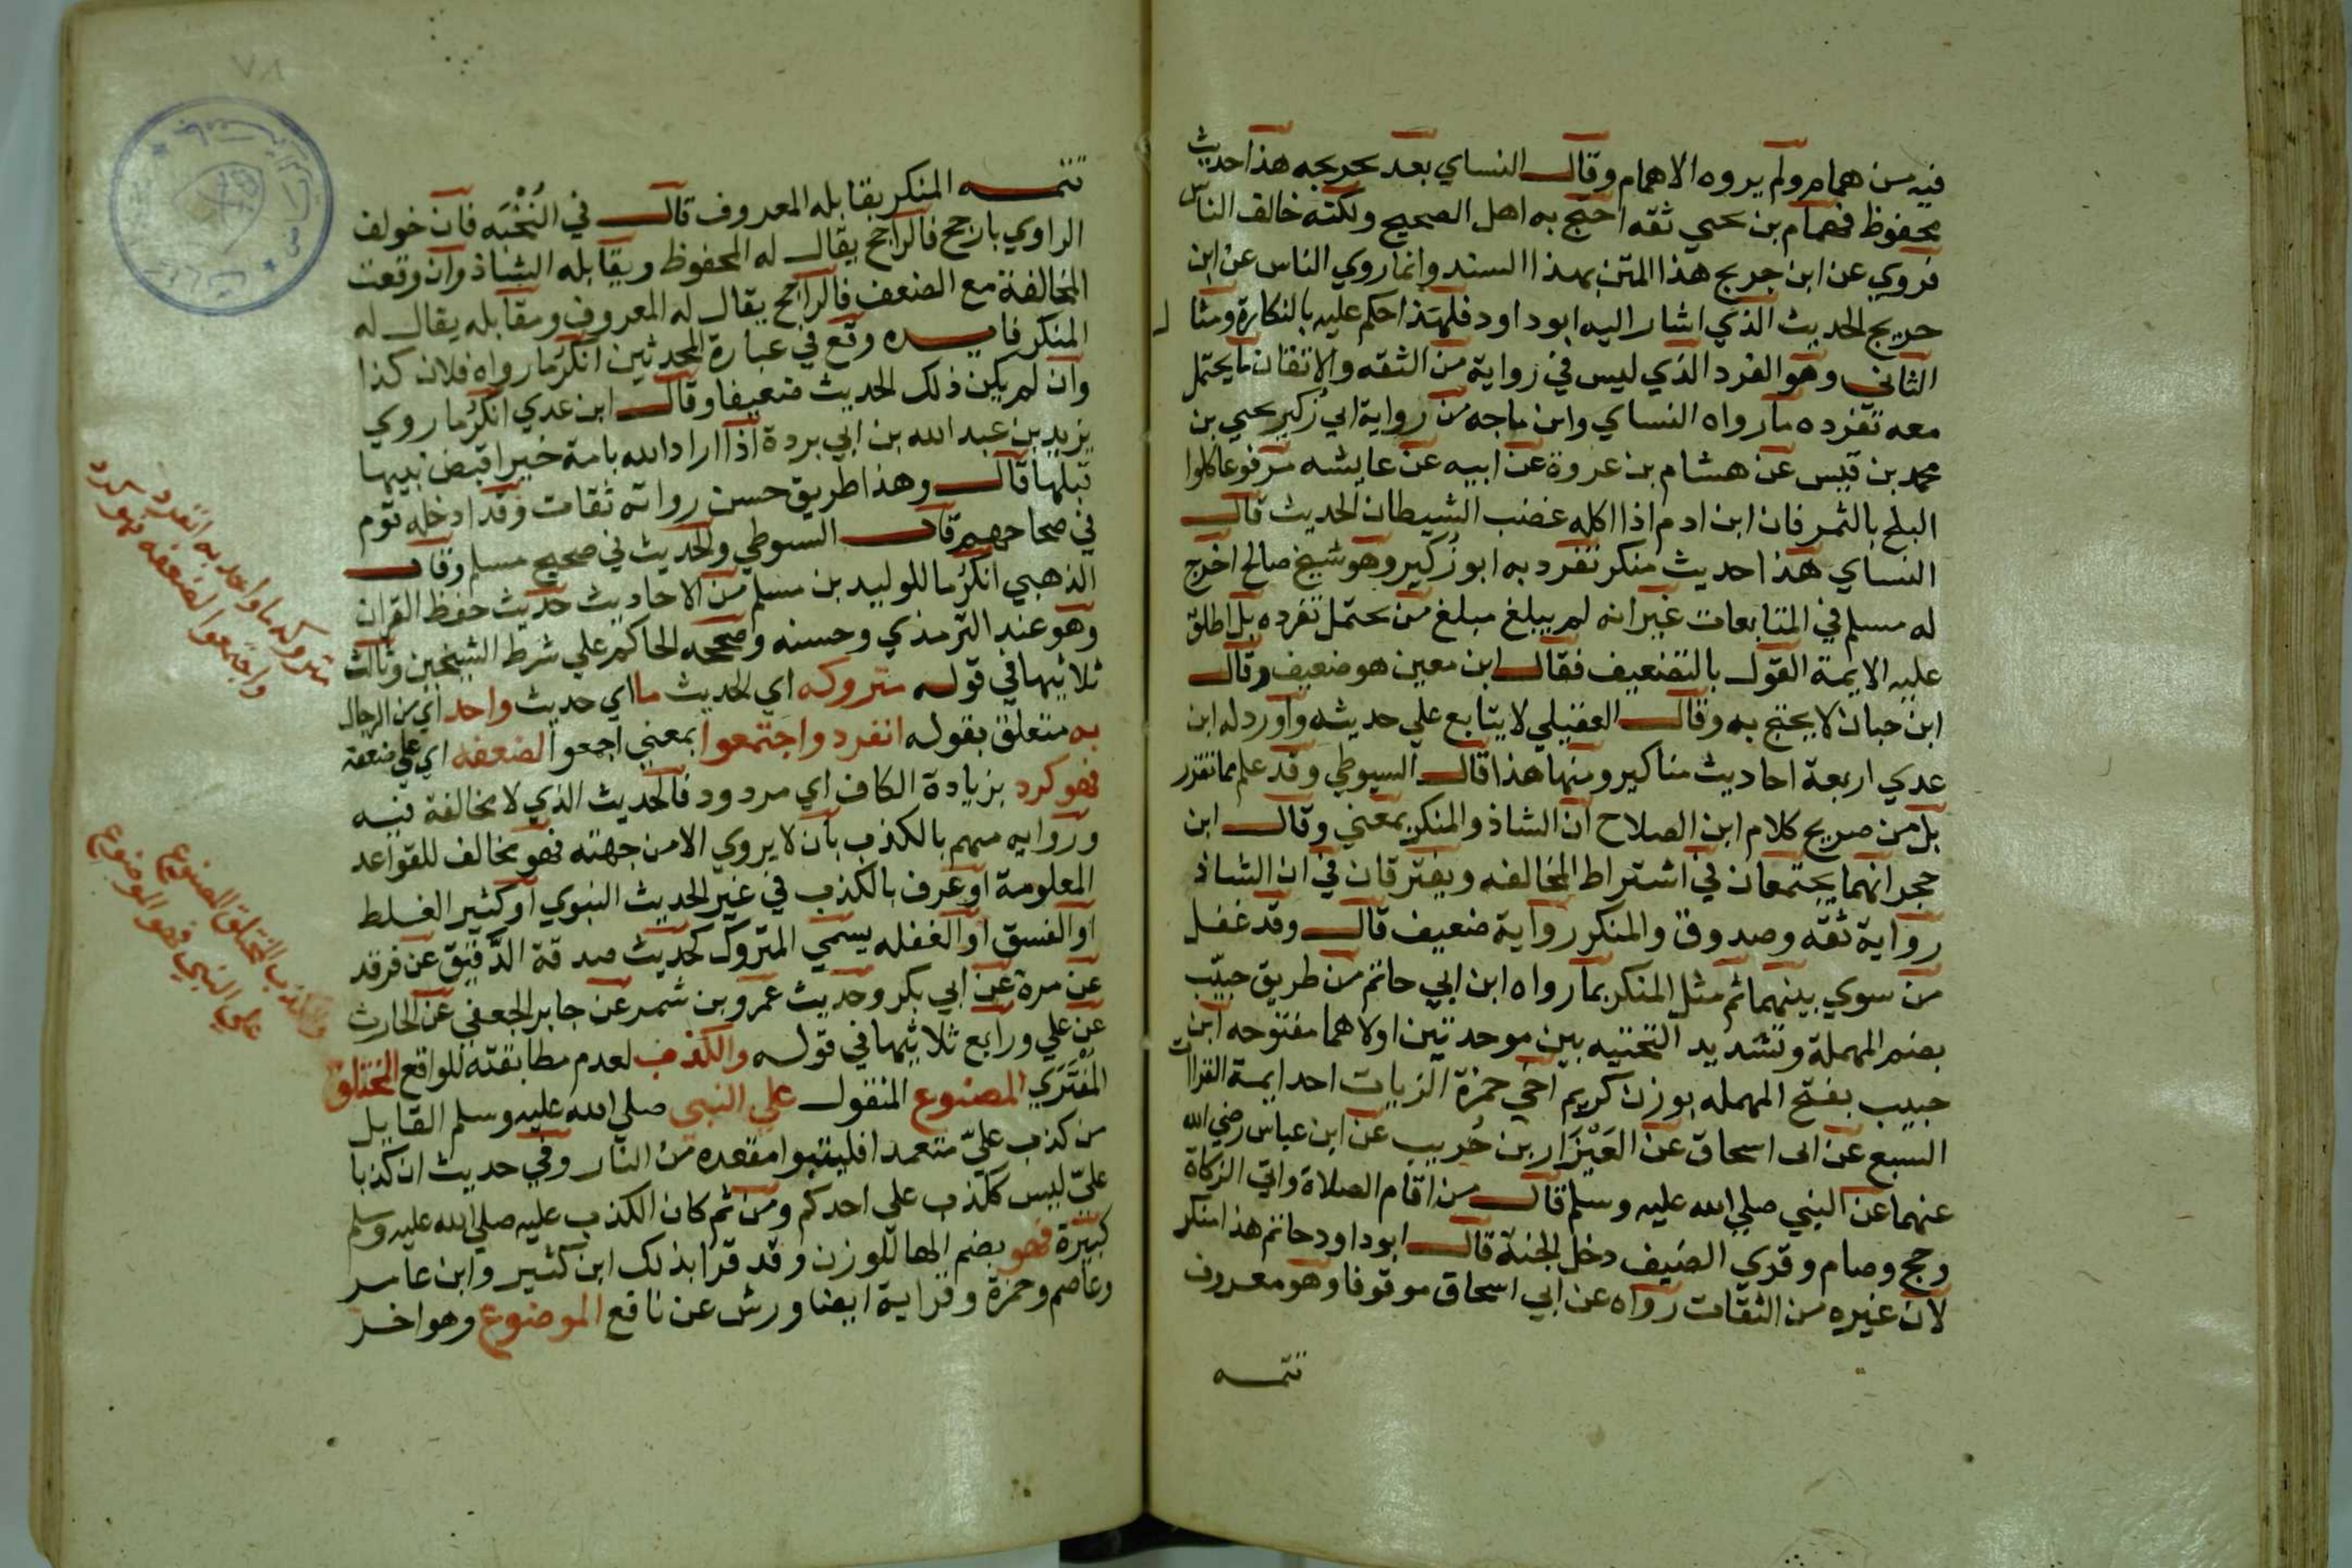 فيه من همام ولم يروه الا همام وقال النساي بعد تخريجه هذا حديث
محفوظ فهمام بن يحيي ثقه احتج به اهل الصحيح ولكنه خالف الناس
فروي عن ابن جريج هذا المتن بهذا السند وانما روي الناس عن ابن
جريج الحديث الذي اشار اليه ابو داود فلهذا حكم عليه بالنكارة ومثال
الثاني وهو الفرد الذي ليس في رواية من الثقه والاتقان ما يحتمل
معه تفرده ما رواه النساي وابن ماجه من رواية ابي زكير يحيي بن
محمد بن قيس عن هشام بن عروة عن ابيه عن عايشه مرفوعا كلوا
البلح بالتمر فان ابن ادم اذا اكله غضب الشيطان الحديث قال
النساي هذا حديث منكر تفرد به ابو زكير وهو شيخ صالح اخرج
له مسلم في المتابعات غير انه لم يبلغ مبلغ من يحتمل تفرده بل اطلق
عليه الايمة القول بالتضعيف فقال ابن معين هو ضعيف وقال
ابن حبان لا يحتج به وقال العقيلي لا يتابع علي حديثه واورد له ابن
عدي اربعة احاديث مناكير ومنها هذا قال السيوطي وقد علم مما تقرر
بل من صريح كلام ابن الصلاح ان الشاذ والمنكر بمعني وقال ابن
حجر انهما يجتمعان في اشتراط المخالفه ويفترقان في ان الشاذ
رواية ثقه وصدوق والمنكر رواية ضعيف قال وقد غفل
من سوي بينهما ثم مثل المنكر بما رواه ابن ابي حاتم من طريق حبيّب
بضم المهملة وتشديد التحتيه بين موحدتين اولاهما مفتوحه ابن
حبيب بفتح المهمله بوزن كريم اخي حمزة الزيات احد ايمة القراات
السبع عن ابي اسحاق عن العَيْزَار بن حُريب عن ابن عباس رضي الله
عنهما عن النبي صلي الله عليه وسلم قال من اقام الصلاة واتي الزكاة
وحج وصام وقري الضيف دخل الجنة قال ابو داود حاتم هذا منكر
لان غيره من الثقات رواه عن ابي اسحاق موقوفا وهو معروف
تتمه
تتمه المنكر يقابله المعروف قال في النُخْبَه فان خولف
الراوي بارجح فالراجح يقال له المحفوظ ويقابله الشاذ وان وقعت
المخالفة مع الضعف فالراجح يقال له المعروف ومقابله يقال له
المنكر فايده وقع في عبارة المحدثين انكرُ ما رواه فلان كذا
وان لم يكن ذلك الحديث ضعيفا وقال ابن عدي انكرُ ما روي
يزيد بن عبد الله بن ابي بردة اذا اراد الله بامة خيرا قبض نبيها
قبلها قال وهذا طريق حسن رواته ثقات وقد ادخله قوم
في صحاحهم قال السيوطي والحديث في صحيح مسلم وقال
الذهبي انكرُ ما للوليد بن مسلم من الاحاديث حديث حفظ القران
وهو عند الترمذي وحسنه وصححه الحاكم علي شرط الشيخين وثالث
ثلاثيها في قوله متروكه اي الحديث ما اي حديث واحد اي من الرجال
به متعلق بقوله انفرد واجتمعوا بمعني اجمعوا لضعفه اي علي ضعفه
فهو كرد بزيادة الكاف اي مردود فالحديث الذي لا مخالفة فيه
وروايه متهم بالكذب بان لا يروي الا من جهته فهو مخالف للقواعد
المعلومة او عرف بالكذب في غير الحديث النبوي او كثير الغلط
او الفسق او الغفله يسمي المتروك كحديث صدقة الدَّقيق عن فرقد
عن مرة عن ابي بكر وحديث عمرو بن شمر عن جابر الجعفي عن الحارث
عن علي ورابع ثلاثيها في قوله والكذب لعدم مطابقته للواقع المختلق
المُفْتَرَي المصنوع المنقول علي النبي صلي الله عليه وسلم القايل
من كذب عليّ متعمدا فليتبوا مقعده من النار وفي حديث ان كذبا
عليّ ليس ككذب علي احدكم ومن ثم كان الكذب عليه صلي الله عليه وسلم
كبيرة فهو بضم الها للوزن وقد قرا بذلك ابن كثير وابن عامر
وعاصم وحمزة وقراية ايضا ورش عن نافع الموضوع وهو اخر
متروكه ما واحد به انفرد
واجتمعوا لضعفه فهو كرد
والكذب المختلق المصنوع
علي النبي فهو الموضوع